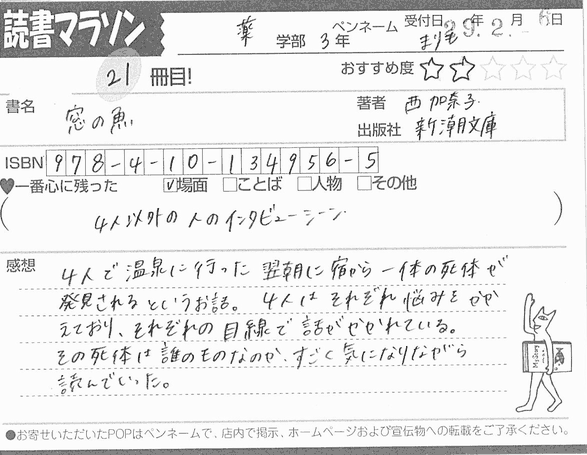 読書マラソン
薬 学部 3年 ペンネーム まりも 受付日 29年2.月6日
21 冊目!
おすすめ度 ☆☆☆☆☆
書名 窓の魚
著者 西加奈子
出版社 新潮文庫
ISBN 978-4-10-134956-5
♥一番心に残った ☑場面 □ことば □人物 □その他
(4人以外の人のインタビューシーン)
感想
4人で温泉に行った翌朝に宿から一体の死体が
発見されるというお話。4人はそれぞれ悩みをかか
えており、それぞれの目線で話がかかれている。
その死体は誰のものなのか、すごく気になりながら
読んでいった。
Mystery
●お寄せいただいたPOPはペンネームで、店内で掲示、ホームページおよび宣伝物への転載をご了承ください。